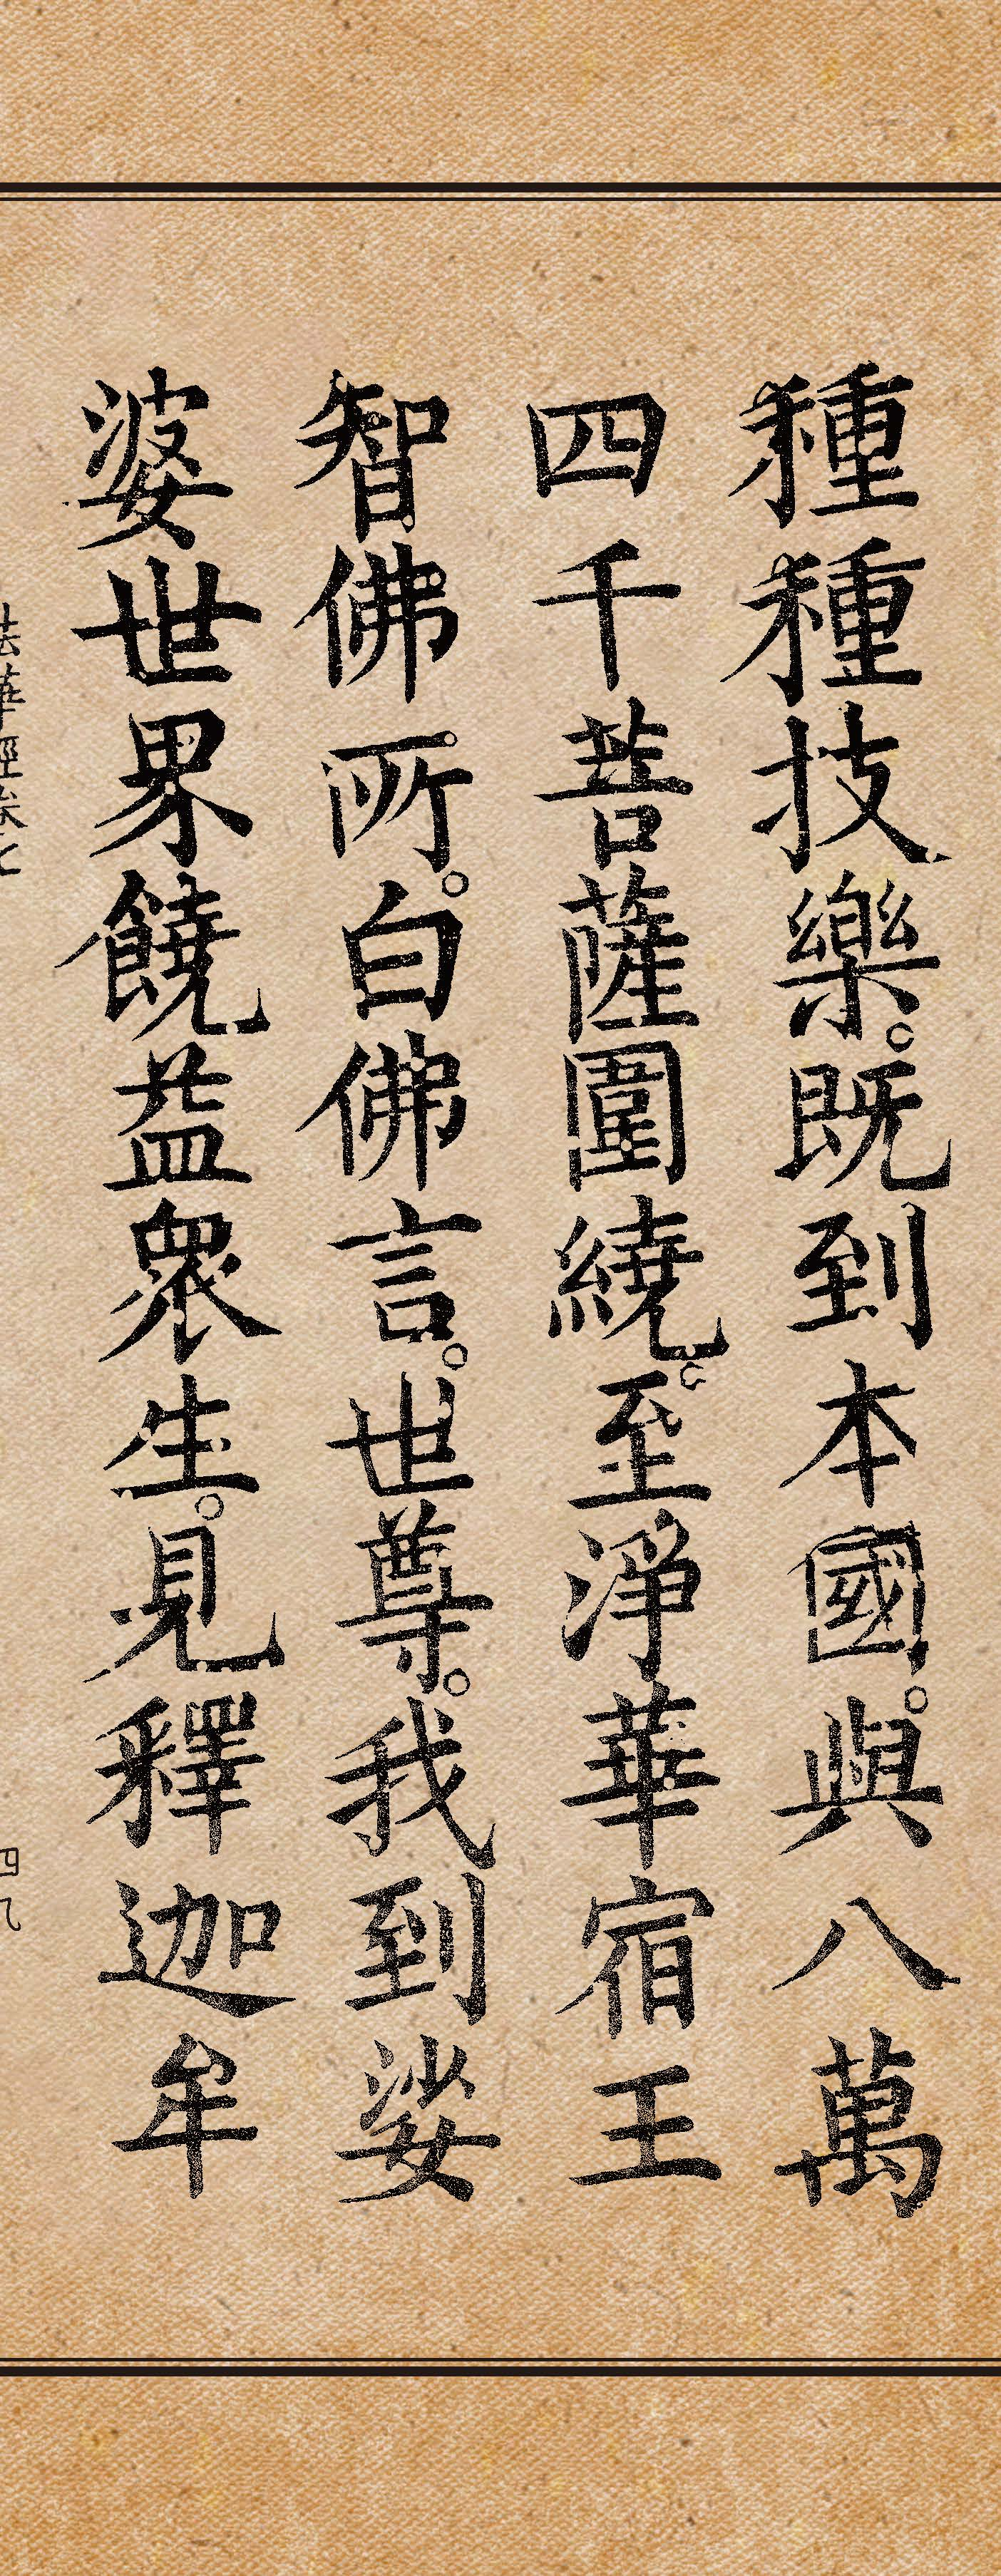 種種技樂。既到本國。與八萬
四千菩薩圍繞。至淨華宿王
智佛所。白佛言。世尊。我到娑
婆世界饒益眾生。見釋迦牟
法華經卷七